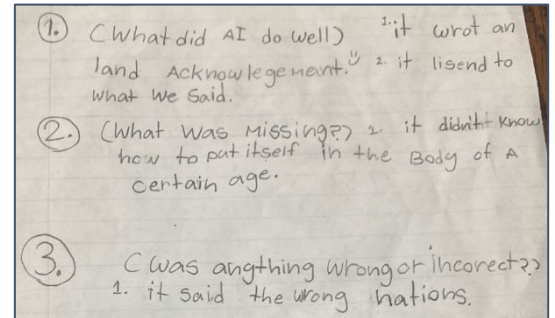 1. (What did AI do well) 1. it wrot an
land Acknowlegement. 2. it lisend to
what we said.
2. (What was missing?) 2. it didn't know
how to put itself in the Body of A
certain age.
3. (was angthing wrong or incorect?)
1. it said the wrong nations.